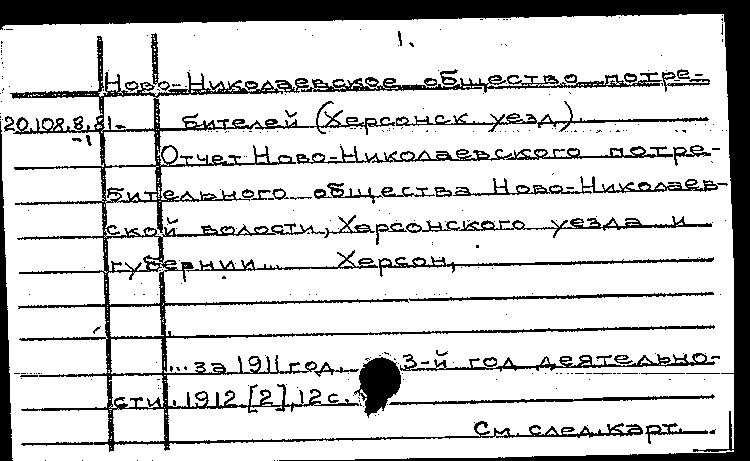 1.
Ново-Николаевское общество потре-
20.108.8.81- бителей (Херсонск. уезд).
-1 Отчет Ново-Николаевского потре-
бительного общества Ново-Николаев-
ской волости, Херсонского уезда и
губернии... Херсон,
...за 1911 год. 3-й год деятельно-
сти. 1912 [2], 12 с.
См. след. карт.